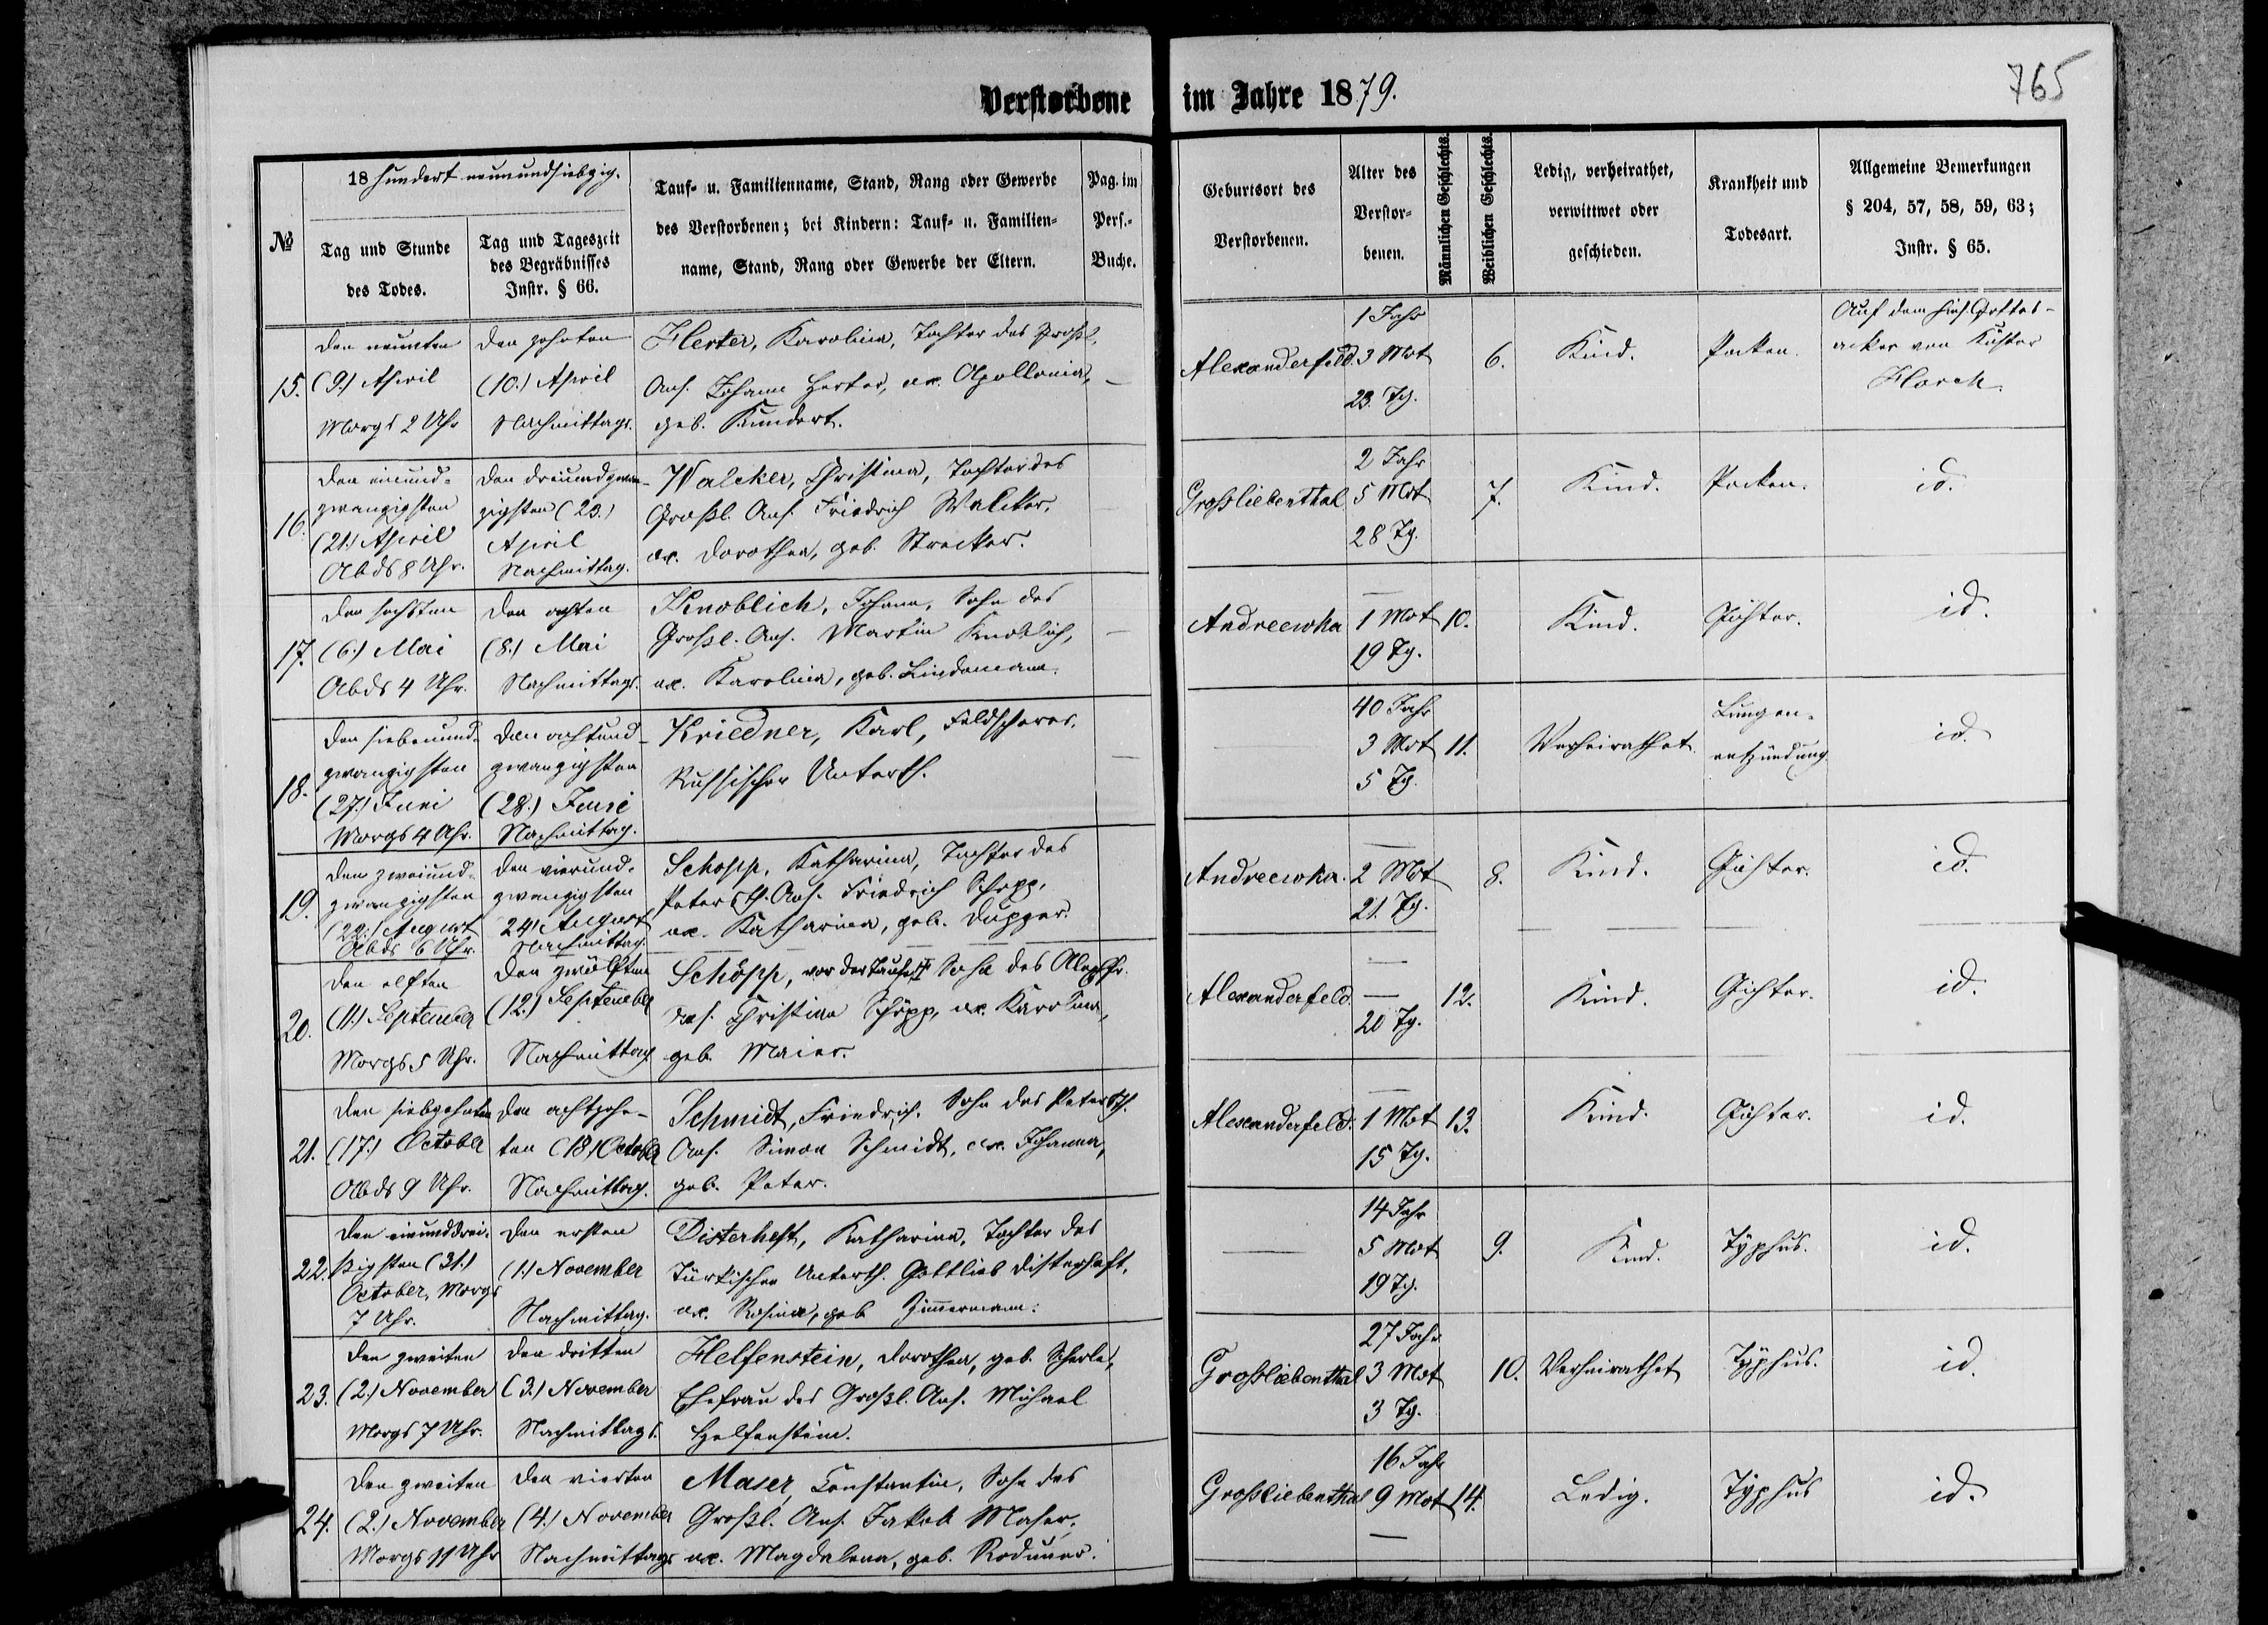 Verstorbene im Jahre 1879.
765
18 hundert neunundsiebzig.
№
Tag und Stunde
des Todes.
Tag und Tageszeit
des Begräbnisses
Instr. § 66.
Tauf- u. Familienname, Stand, Rang oder Gewerbe
des Verstorbenen; bei Kindern: Tauf- u. Familien-
name, Stand, Rang oder Gewerbe der Eltern.
Pag. im
Pers.-
Buche.
Geburtsort des
Verstorbenen.
Alter des
Verstor-
benen.
Männlichen Geschlechts.
Weiblichen Geschlechts.
Ledig, verheirathet,
verwittwet oder
geschieden.
Krankheit und
Todesart.
Allgemeine Bemerkungen
§ 204, 57, 58, 59, 63;
Instr. § 65.
15.
den neunten
(9.) April
Morgs 2 Uhr
den zehnten
(10.) April
Nachmittags.
Herter, Karolina, Tochter des Großl.
Ans. Johann Herter, ux. Apollonia,
geb. Kundert.
Alexanderfeld.
1 Jahr
3 Mot
23. Tg.
6.
Kind.
Pocken.
Auf dem hies. Gottes-
acker von Küster
Horch.
16.
den einund-
zwanzigsten
(21.) April
Abds 8 Uhr.
den dreiundzwan-
zigsten (23.)
April
Nachmittag.
Walcker, Christina, Tochter des
Großl. Ans. Friedrich Walcker,
ux. Dorothea, geb. Strecker.
Großliebenthal
2 Jahr
5 Mot
28 Tg.
7.
Kind.
Pocken.
id.
17.
den sechsten
(6.) Mai
Abds 4 Uhr.
den achten
(8.) Mai
Nachmittags.
Knoblich, Johann, Sohn des
Großl. Ans. Martin Knoblich,
ux. Karolina, geb. Lindemann.
Andreewka
1 Mot
19 Tg.
10.
Kind.
Gichter.
id.
18.
den siebenund-
zwanzigsten
(27.) Juni
Morgs 4 Uhr.
den achtund-
zwanzigsten
(28.) Juni
Nachmittag.
Kriedner, Karl, Feldscherer,
Russischer Unterth.
40 Jahr
3 Mot
5 Tg.
11.
Verheirathet.
Lungen-
entzündung.
id.
19.
den zweiund-
zwanzigsten
(22.) August
Abds 6 Uhr.
den vierund-
zwanzigsten
24. August
Nachmittag.
Schopp, Katharina, Tochter des
Petersth. Ans. Friedrich Schopp,
ux. Katharina, geb. Dupper.
Andreewka.
2 Mot
21. Tg.
8.
Kind.
Gichter.
id.
20.
den elften
(11.) September
Morgs 5 Uhr.
den zwölften
(12.) September
Nachmittag
Schöpp, vor der Taufe † Sohn des Alexfr.
Ans. Christian Schöpp, ux. Karolina,
geb. Maier.
Alexanderfeld.
20 Tg.
12.
Kind.
Gichter.
id.
21.
den siebzehnten
(17.) October
Abds 9 Uhr.
den achtzehn-
ten (18.) October
Nachmittag.
Schmidt, Friedrich, Sohn des Petersth.
Ans. Simon Schmidt, ux. Johanna,
geb. Peter.
Alexanderfeld.
1 Mot
15 Tg.
13.
Kind.
Gichter.
id.
22.
den einunddrei-
ßigsten (31.)
October, Morgs
7 Uhr.
den ersten
(1.) November
Nachmittag.
Disterheft, Katharina, Tochter des
Türkischen Unterth. Gottlieb Disterheft,
ux. Rosina, geb Zimmermann.
14 Jahr
5 Mot
19 Tg.
9.
Kind.
Typhus.
id.
23.
den zweiten
(2.) November
Morgs 7 Uhr.
den dritten
(3.) November
Nachmittags.
Helfenstein, Dorothea, geb. Scherle,
Ehefrau des Großl. Ans. Michael
Helfenstein.
Großliebenthal
27 Jahr
3 Mot
3 Tg.
10.
Verheirathet
Typhus.
id.
24.
den zweiten
(2.) November
Morgs 11 Uhr
den vierten
(4.) November
Nachmittags
Maser, Constantin, Sohn des
Großl. Ans. Jakob Maser,
ux. Magdalena, geb. Roduner.
Großliebenthal
16 Jahr
9 Mot
14.
Ledig.
Typhus
id.